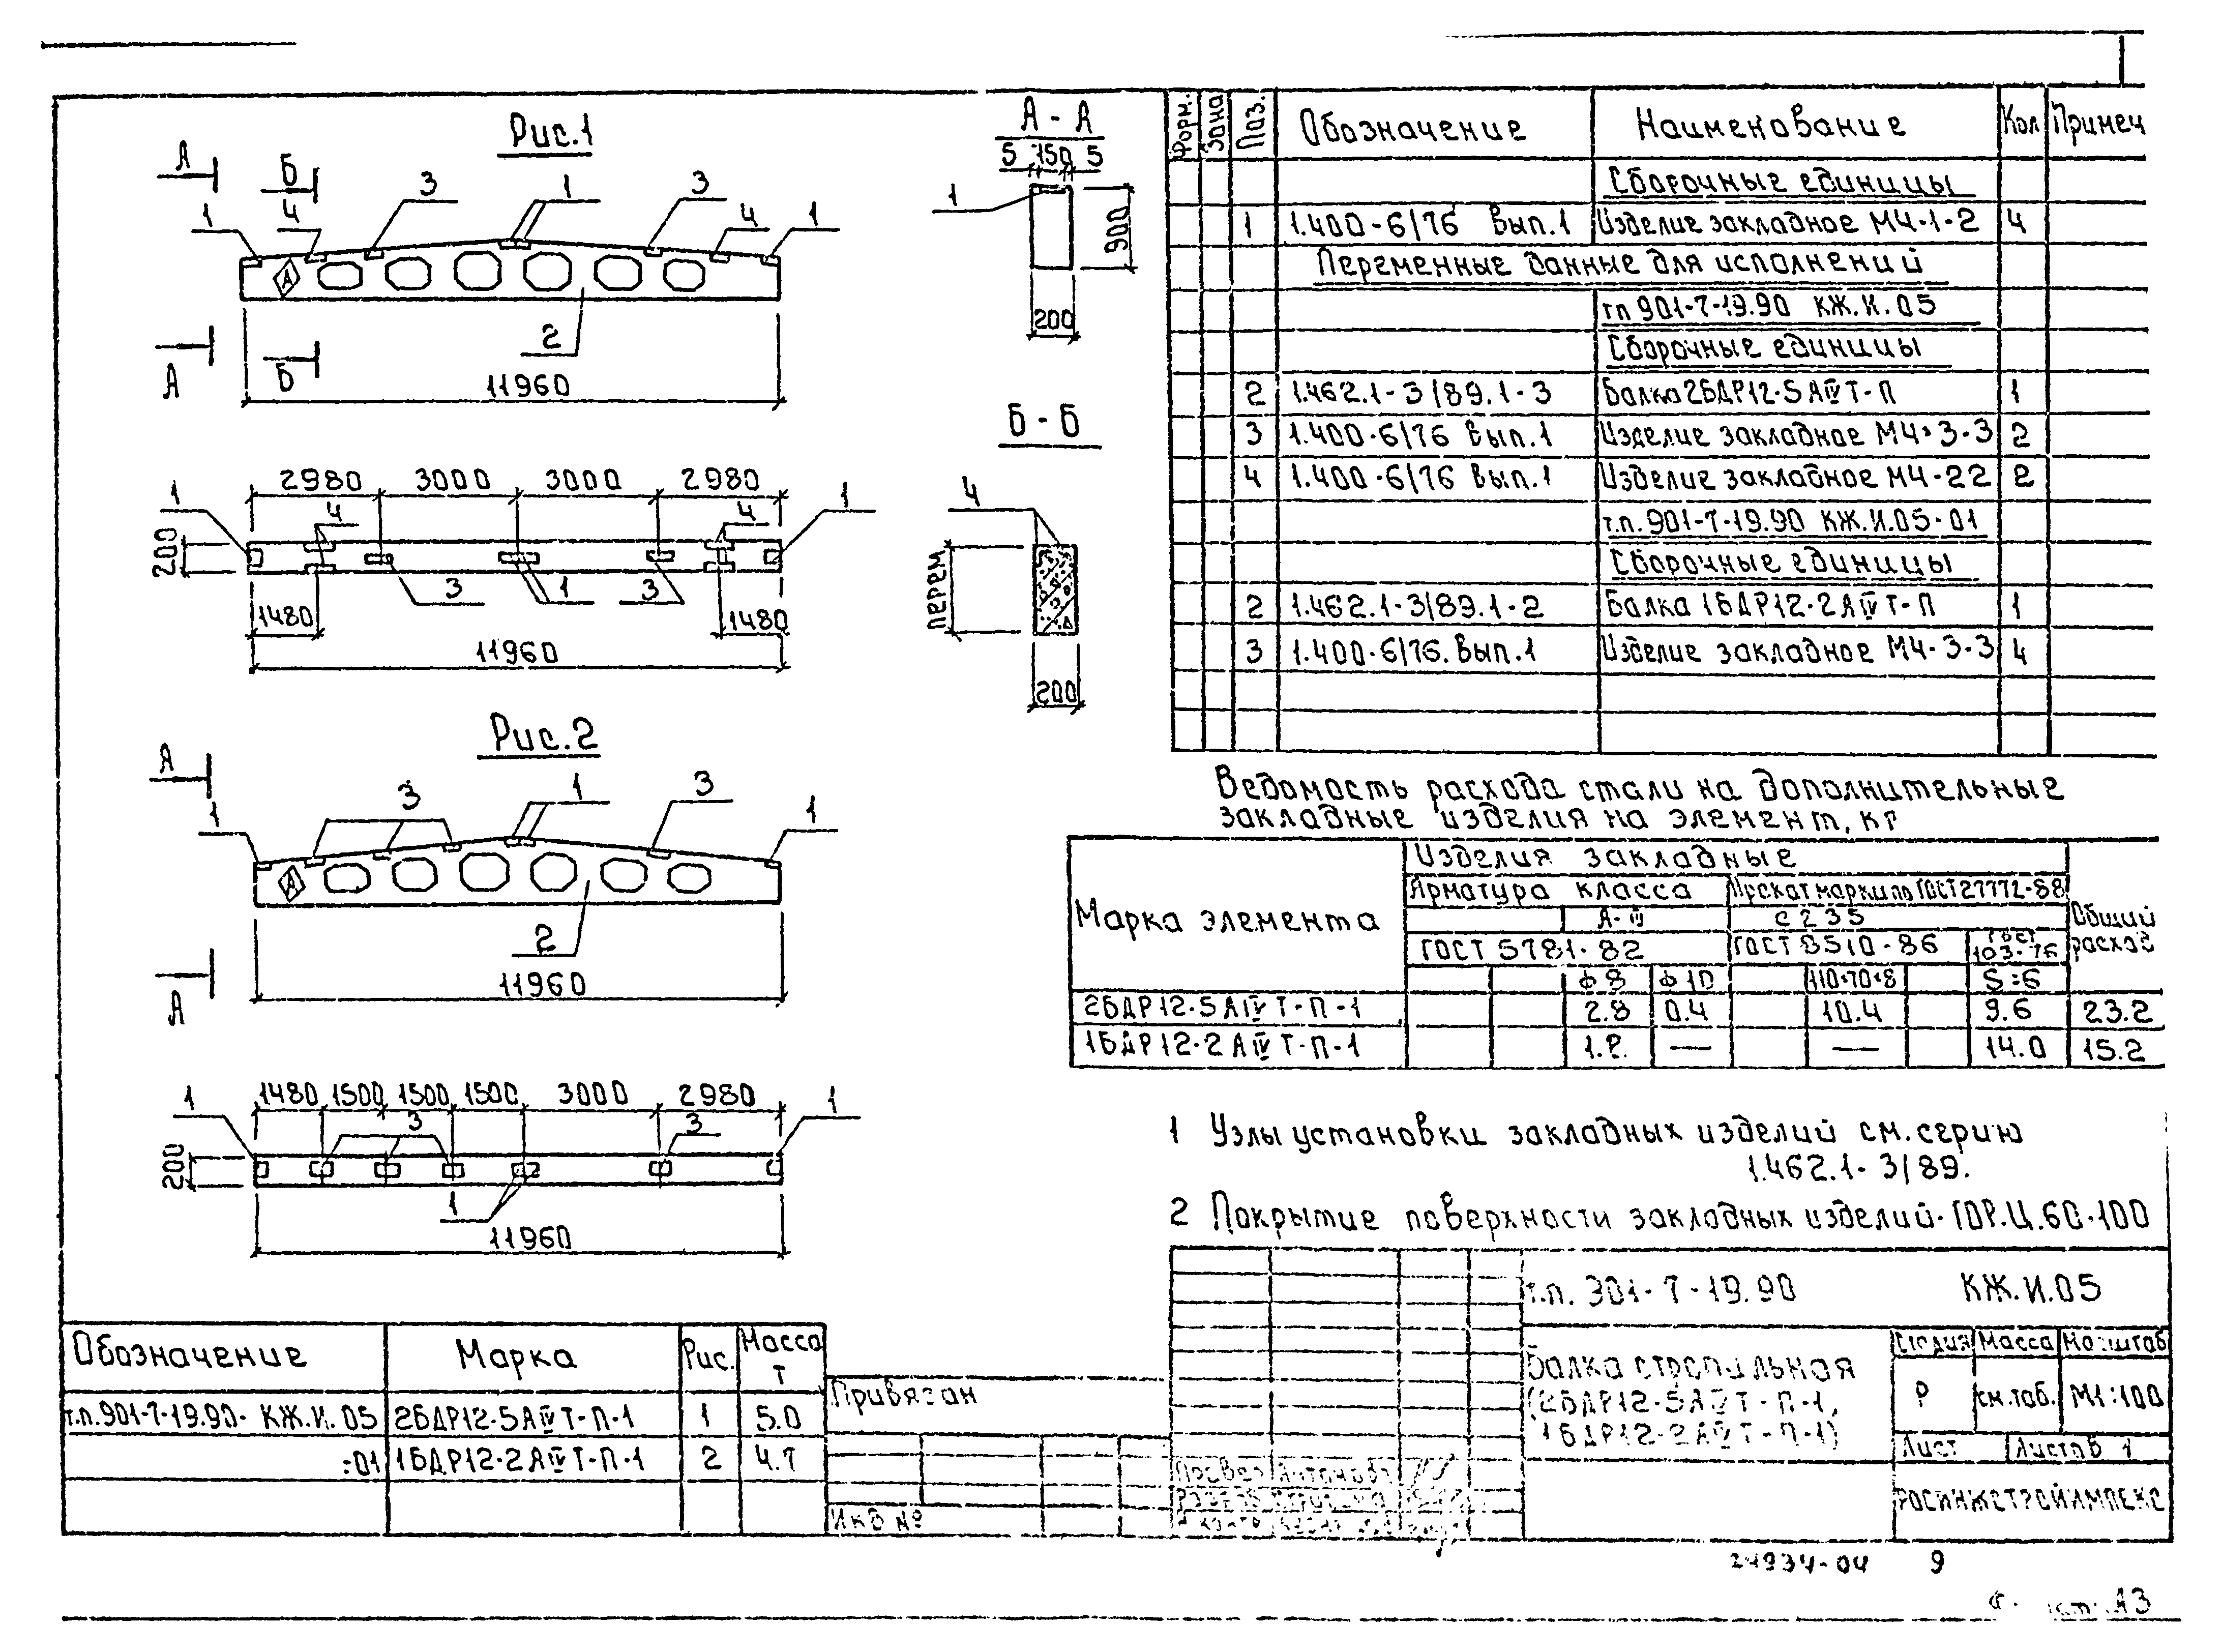 Рис.1
А
Б
4
3
1
3
4
1
1
А
2
А
Б
11960
2980 3000 3000 2980
1
4
4
1
200
3
1
3
1480
1480
11960
Рис.2
А
1
3
1
3
1
А
2
11960
А
1480 1500 1500 1500 3000 2980
1
3
3
1
200
1
11960
А - А
5 150 5
1
900
200
Б - Б
4
перем
200
Форм. Зона Поз. Обозначение Наименование Кол Примеч
Сборочные единицы
1 1.400-6/76 Вып.1 Изделие закладное М4-1-2 4
Переменные данные для исполнений
тп 901-7-19.90 КЖ.И.05
Сборочные единицы
2 1.462.1-3/89.1-3 Балка 2БДР12-5АIVТ-П 1
3 1.400-6/76 Вып.1 Изделие закладное М4-3-3 2
4 1.400-6/76 Вып.1 Изделие закладное М4-22 2
т.п. 901-7-19.90 КЖ.И.05-01
Сборочные единицы
2 1.462.1-3/89.1-2 Балка 1БДР12-2АIVТ-П 1
3 1.400-6/76. Вып.1 Изделие закладное М4-3-3 4
Ведомость расхода стали на дополнительные
закладные изделия на элемент, кг
Марка элемента
Изделия закладные
Арматура класса Прокат марки по ГОСТ 27772-88
А-III С235 Общий
ГОСТ 5781-82 ГОСТ 8510-86 ГОСТ 103-76 расход
ф8 ф10 110×70×8 S=6
2БДР12-5АIVТ-П-1 2.8 0.4 10.4 9.6 23.2
1БДР12-2АIVТ-П-1 1.2. — — 14.0 15.2
1 Узлы установки закладных изделий см. серию
1.462.1-3/89.
2 Покрытие поверхности закладных изделий-ГОР.Ц.60-100
Обозначение Марка Рис. Масса т
т.п.901-7-19.90- КЖ.И.05 2БДР12-5АIVТ-П-1 1 5.0
-01 1БДР12-2АIVТ-П-1 2 4.7
Привязан
Инв №
т.п. 901-7-19.90 КЖ.И.05
Балка стропильная
(2БДР12-5АIVТ-П-1,
1БДР12-2АIVТ-П-1)
Стадия Масса Масштаб
Р см.таб. М1:100
Лист Листов 1
РОСИНЖСТРОЙИМПЕКС
24934-04 9
А3